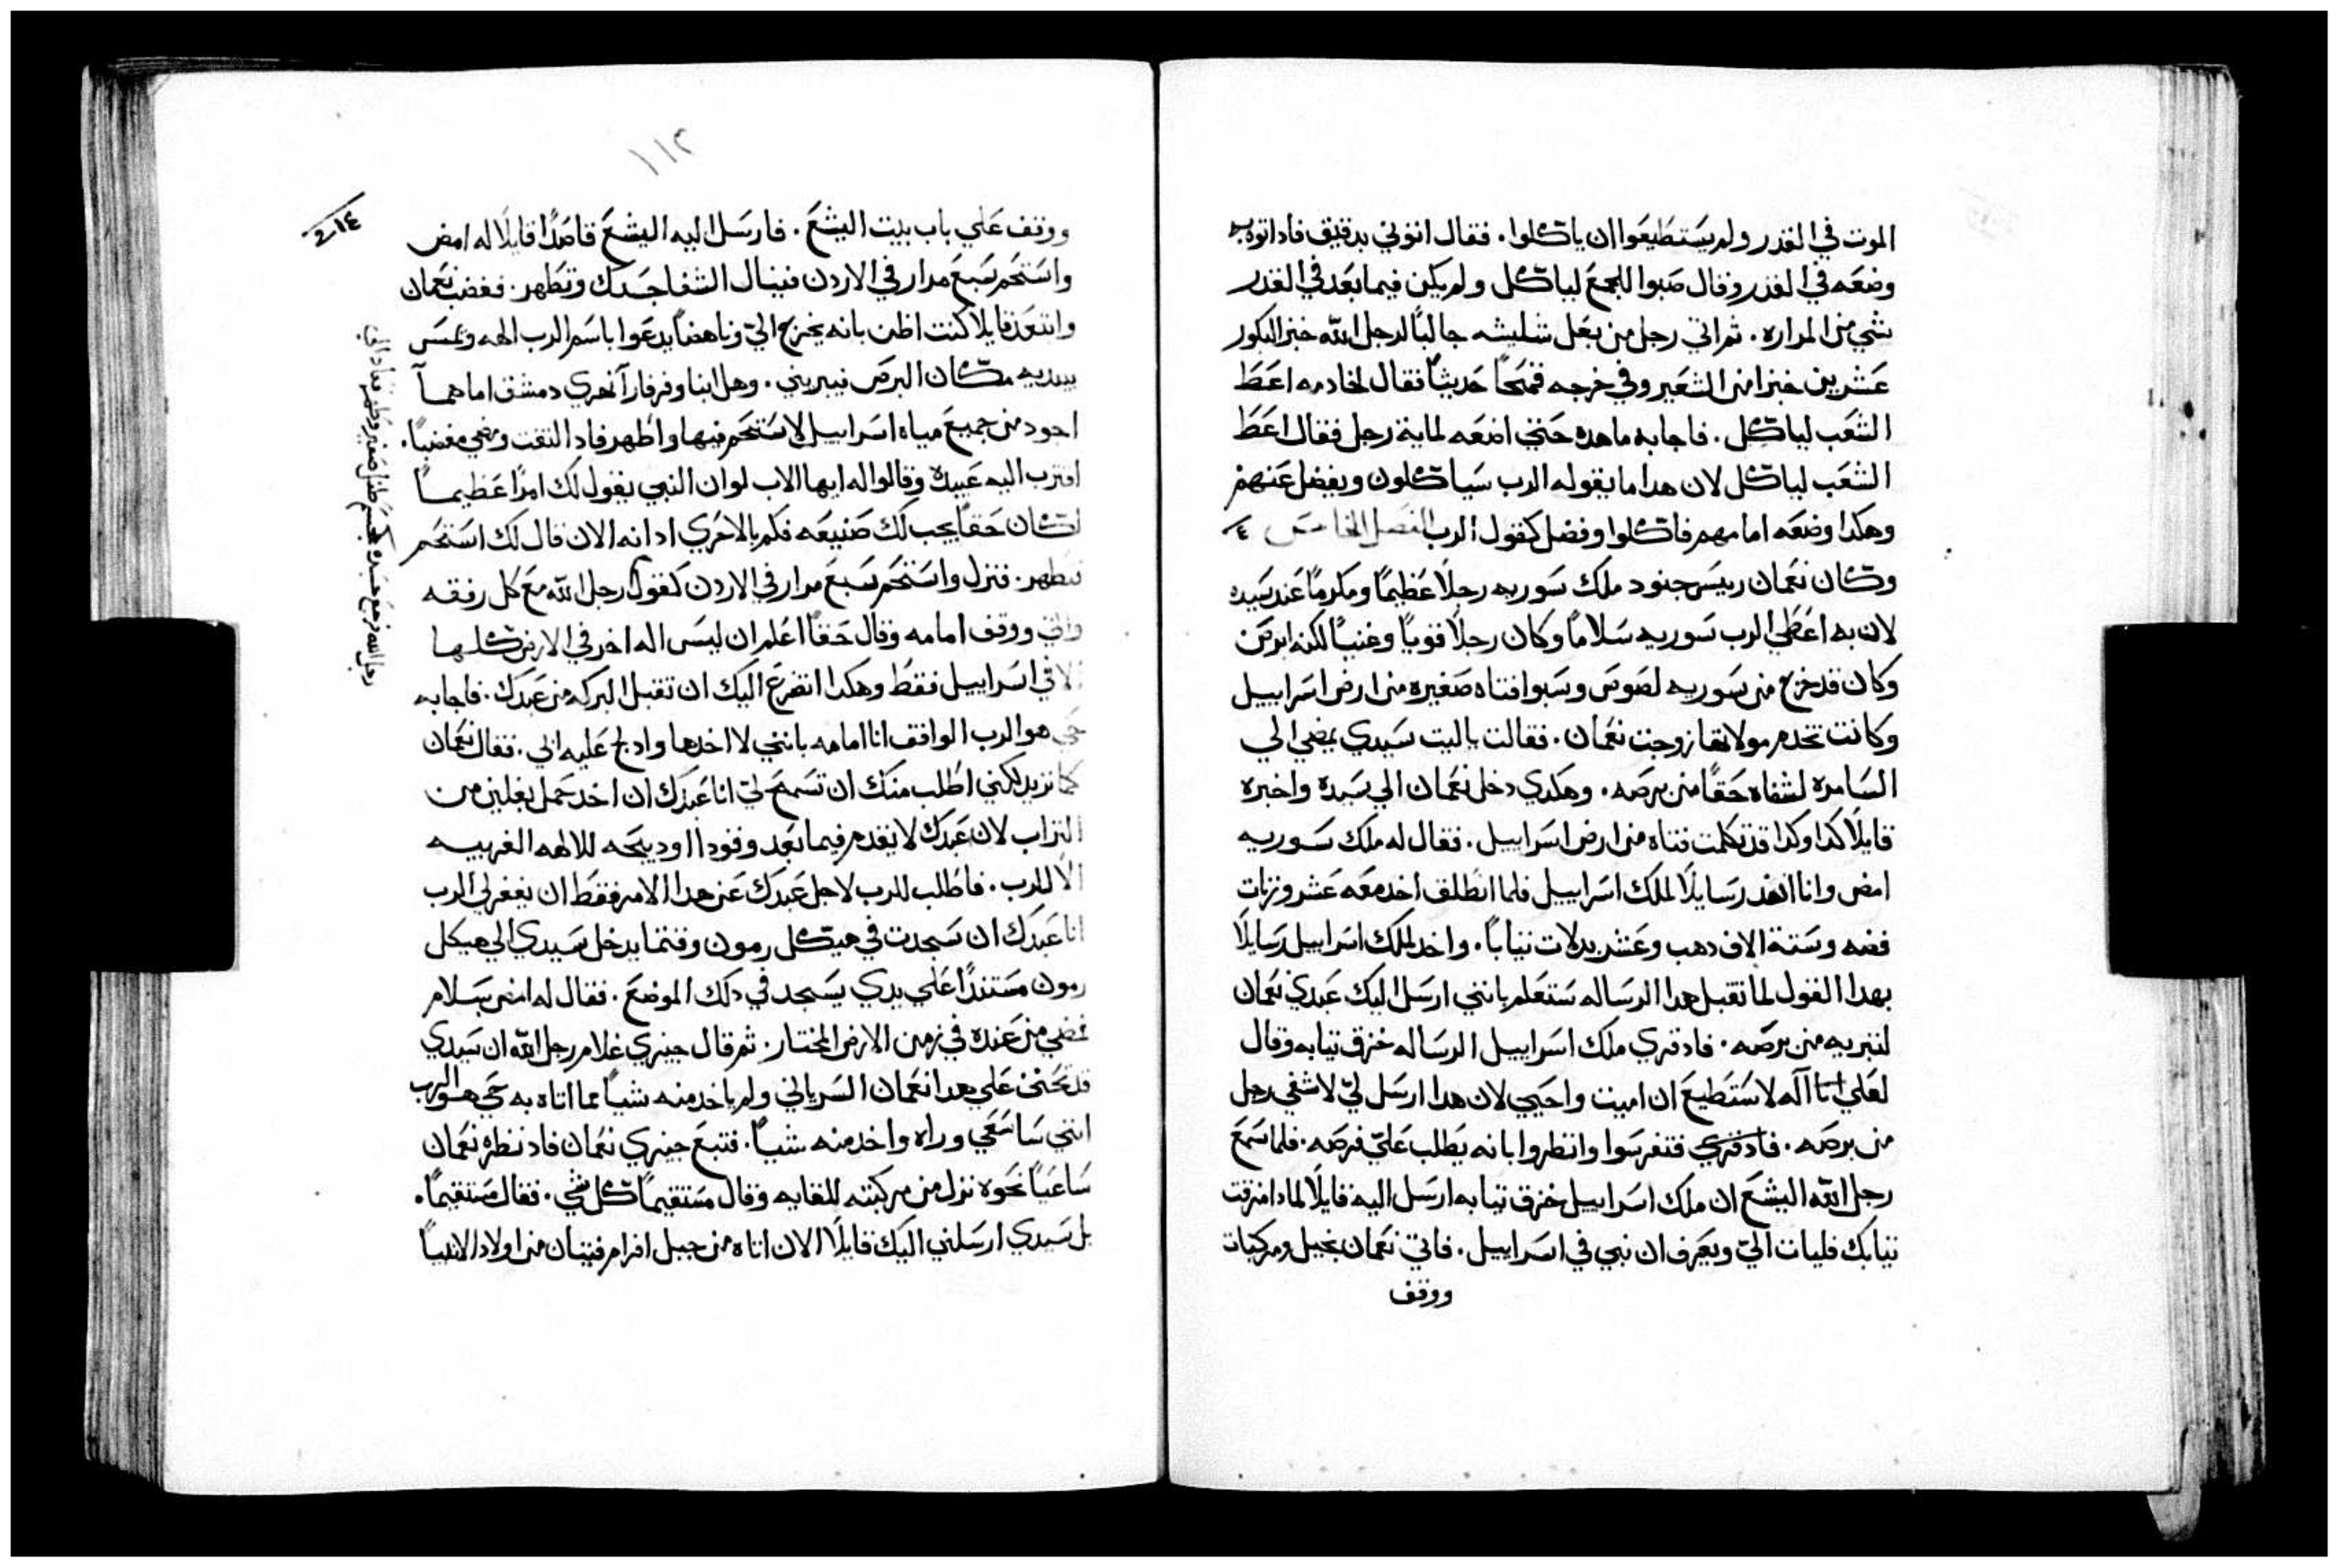 الموت في القدر ولم يستطيعوا ان ياكلوا. فقال اتوني بدقيق فاد اتوه به
وضعه في القدر وقال صبوا للجمع لياكل ولم يكن فيما بعد في القدر
شي من المراره. ثم اتي رجل من بعل شليشه جالبًا لرجل الله خبز البكور
عشرين خبزا من الشعير وفي خرجه قمحًا حديثًا فقال لخادمه اعط
الشعب لياكل. فاجابه ما هده حتي اضعه لماية رجل فقال اعط
الشعب لياكل لان هدا ما يقوله الرب سياكلون ويفضل عنهم
وهكدا وضعه امامهم فاكلوا وفضل كقول الرب الفصل الخامس
وكان نعمان رييس جنود ملك سوريه رجلًا عظيمًا ومكرمًا عند سيده
لان به اعطي الرب سوريه سلامًا وكان رجلًا قويًا وغنيًا لكنه ابرص
وكان قد خرج من سوريه لصوص وسبوا فتاه صغيره من ارض اسراييل
وكانت تخدم مولاتها زوجت نعمان. فقالت ياليت سيدي يمضي الي
السامره لشفاه حقًا من برصه. وهكدي دخل نعمان الي سيده واخبره
قايلًا كدا وكدا قد تكلمت فتاه من ارض اسراييل. فقال له ملك سوريه
امض وانا انفد رسايلًا لملك اسراييل فلما انطلق اخد معه عشر وزنات
فضه وستة الاف دهب وعشر بدلات تيابًا. واخد لملك اسراييل رسايلًا
بهدا القول لما تقبل هدا الرساله ستعلم بانني ارسل اليك عبدي نعمان
لتبريه من برصه. فاد قري ملك اسراييل الرساله خزق تيابه وقال
لعلي انا اله لاستطيع ان اميت واحيي لان هدا ارسل ليّ لاشفي رجل
من برصه. فاد قري فتفرسوا وانظروا بانه يطلب عليّ فرصه. فلما سمع
رجل الله اليشع ان ملك اسراييل خزق تيابه ارسل اليه قايلًا لمادا مزقت
تيابك فليات اليّ ويعرف ان نبي في اسراييل. فاتي نعمان بخيل ومركبات
ووقف
١١٢
ووقف علي باب بيت اليشع. فارسل اليه اليشع قاصدًا قايلًا له امض
واستحم سبع مرار في الاردن فينال الشفا جسدك وتطهر. فغضب نعمان
وابتعد قايلا كنت اظن بانه يخرج اليّ وناهضًا يدعوا باسم الرب الهه ويلمس
بيديه مكان البرص فيبريني. وهل ابنا وفرفار انهري دمشق اما هما
اجود من جميع مياه اسراييل لاستحم فيها واطهر فاد التفت ومضي مغضبًا.
اقترب اليه عبيده وقالوا له ايها الاب لو ان النبي يقول لك امرًا عظيمًا
لكان حقًا يجب لك صنيعه فكم بالاحري اد انه الان قال لك استحم
فتطهر. فنزل واستحم سبع مرار في الاردن كقول رجل الله مع كل رفقه
واتي ووقف امامه وقال حقًا اعلم ان ليس اله اخر في الارض كلها
الا في اسراييل فقط وهكدا اتضرع اليك ان تقبل البركه من عبدك. فاجابه
حي هو الرب الواقف انا امامه بانني لا اخدها واد لج عليه ابي. فقال نعمان
كما تريد لكني اطلب منك ان تسمح ليّ انا عبدك ان اخد حمل بغلين من
التراب لان عبدك لا يقدم فيما بعد وقودا او دبيحه للالهه الغريبه
الا للرب. فاطلب للرب لاجل عبدك عن هدا الامر فقط ان يغفر لي الرب
انا عبدك ان سجدت في هيكل رمون وقتما يدخل سيدي الي هيكل
رمون مستندًا علي يدي يسجد في دلك الموضع. فقال له امض بسلام
فمضي من عنده في زمن الارض المختار. ثم قال جيزي غلام رجل الله ان سيدي
قد تحنن علي هدا نعمان السرياني ولم ياخد منه شيًا مما اتاه به حي هو الرب
انني ساسعي وراه واخد منه شيًا. فتبع جيزي نعمان فاد نظره نعمان
ساعيًا نحوه نزل من مركبته للقايه وقال مستقيمًا كل شي. فقال مستقيمًا.
بل سيدي ارسلني اليك قايلًا الان اتاه من جبل افرام فتيان من اولاد الانبيا
رجل الله فرجع جسده كجسم طفل صغير وطهر فعاد الي